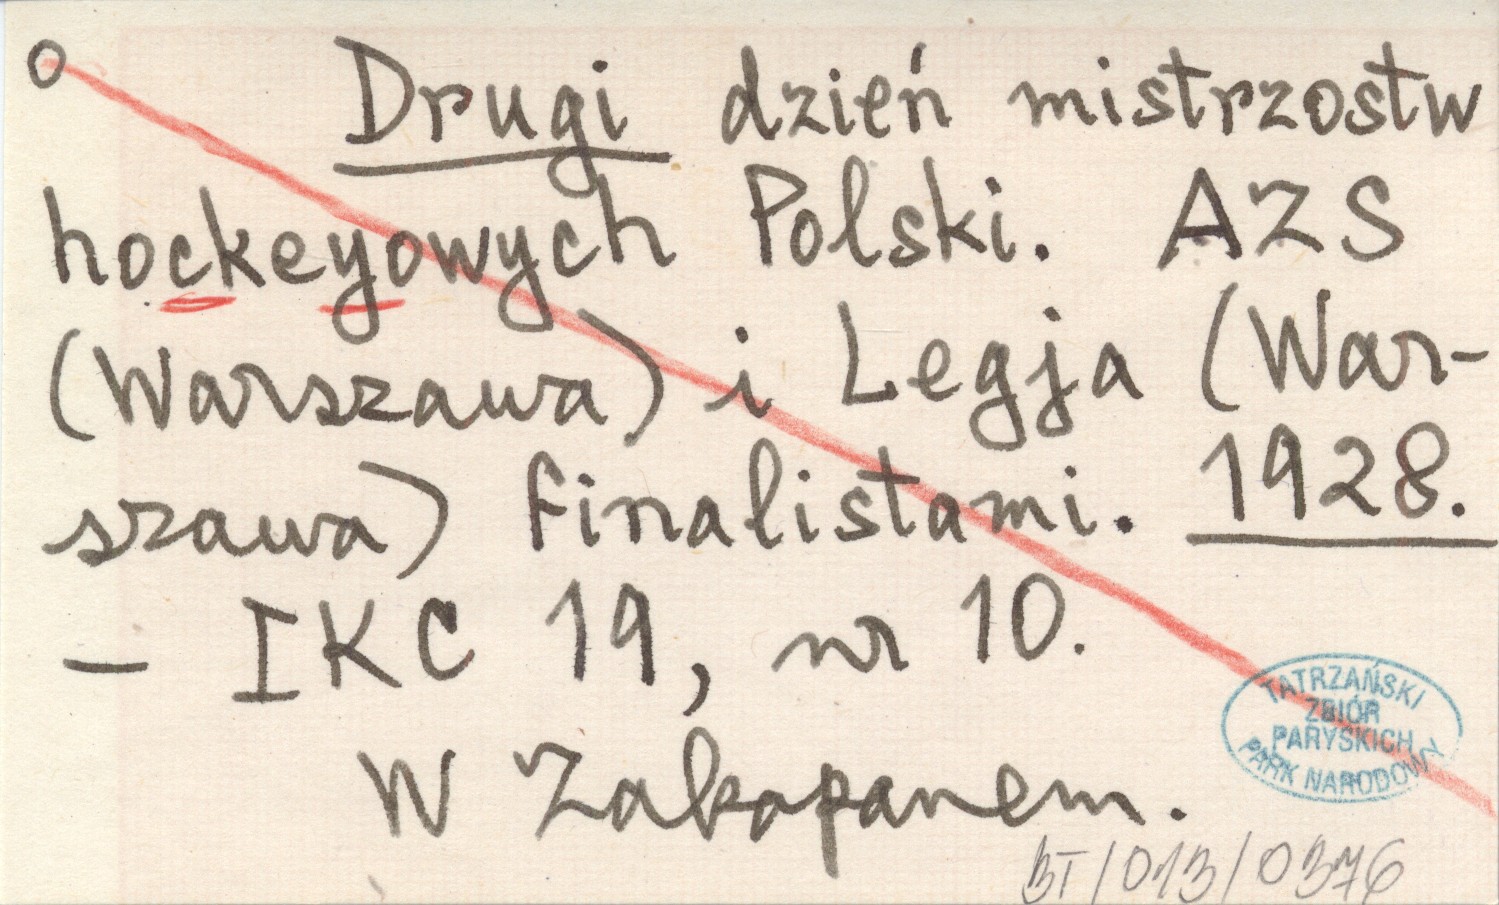 o Drugi dzień mistrzostw
hockeyowych Polski. AZS
(Warszawa) i Legja (War-
szawa) finalistami. 1928.
— IKC 19, nr 10.
W Zakopanem.
TATRZAŃSKI
ZBIÓR
PARYSKICH
PARK NARODOWY
BT/013/0376